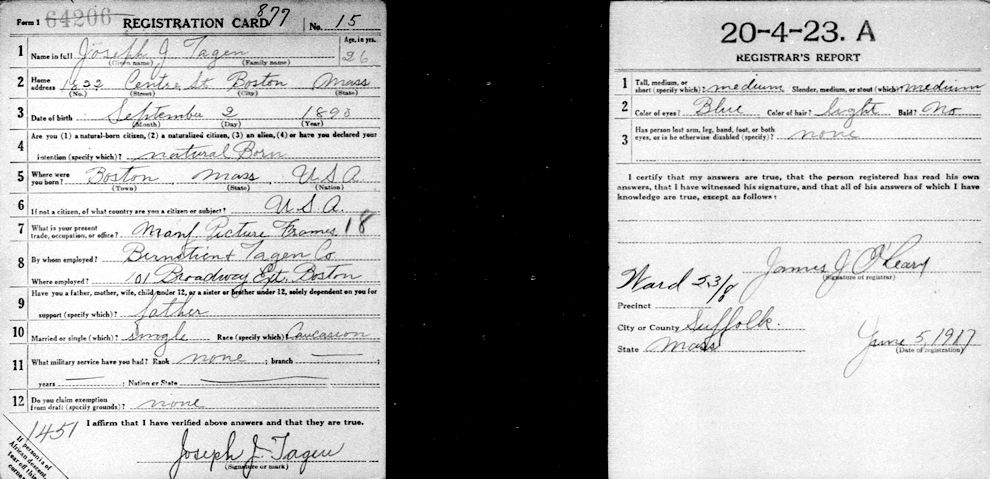 Form 1 64206 REGISTRATION CARD 877 No. 15
1 Name in full Joseph J Tagen Age, in yrs. 26
(Given name) (Family name)
2 Home address 1822 Centre St. Boston Mass
(No.) (Street) (City) (State)
3 Date of birth September 2 1890
(Month) (Day) (Year)
4 Are you (1) a natural-born citizen, (2) a naturalized citizen, (3) an alien, (4) or have you declared your
intention (specify which)? Natural Born
5 Where were you born? Boston Mass U S A
(Town) (State) (Nation)
6 If not a citizen, of what country are you a citizen or subject? U S A.
7 What is your present trade, occupation, or office? Manf Picture Frames 18
8 By whom employed? & Tagen Co
Where employed? 101 Broadway Ext. Boston
9 Have you a father, mother, wife, child under 12, or a sister or brother under 12, solely dependent on you for
support (specify which)? father
10 Married or single (which)? Single Race (specify which)? Caucasion
11 What military service have you had? Rank none ; branch
years ; Nation or State
12 Do you claim exemption from draft (specify grounds)? none
I affirm that I have verified above answers and that they are true.
1451
Joseph J. Tagen
(Signature or mark)
If person is of
African descent,
tear off this
corner
20-4-23. A
REGISTRAR'S REPORT
1 Tall, medium, or short (specify which)? medium Slender, medium, or stout (which)? medium
2 Color of eyes? Blue Color of hair? Light Bald? No
3 Has person lost arm, leg, hand, foot, or both eyes, or is he otherwise disabled (specify)? none
I certify that my answers are true, that the person registered has read his own
answers, that I have witnessed his signature, and that all of his answers of which I have
knowledge are true, except as follows:
James J. O'Leary
(Signature of registrar)
Ward 23/8
Precinct
City or County Suffolk.
State Mass
June 5, 1917
(Date of registration)